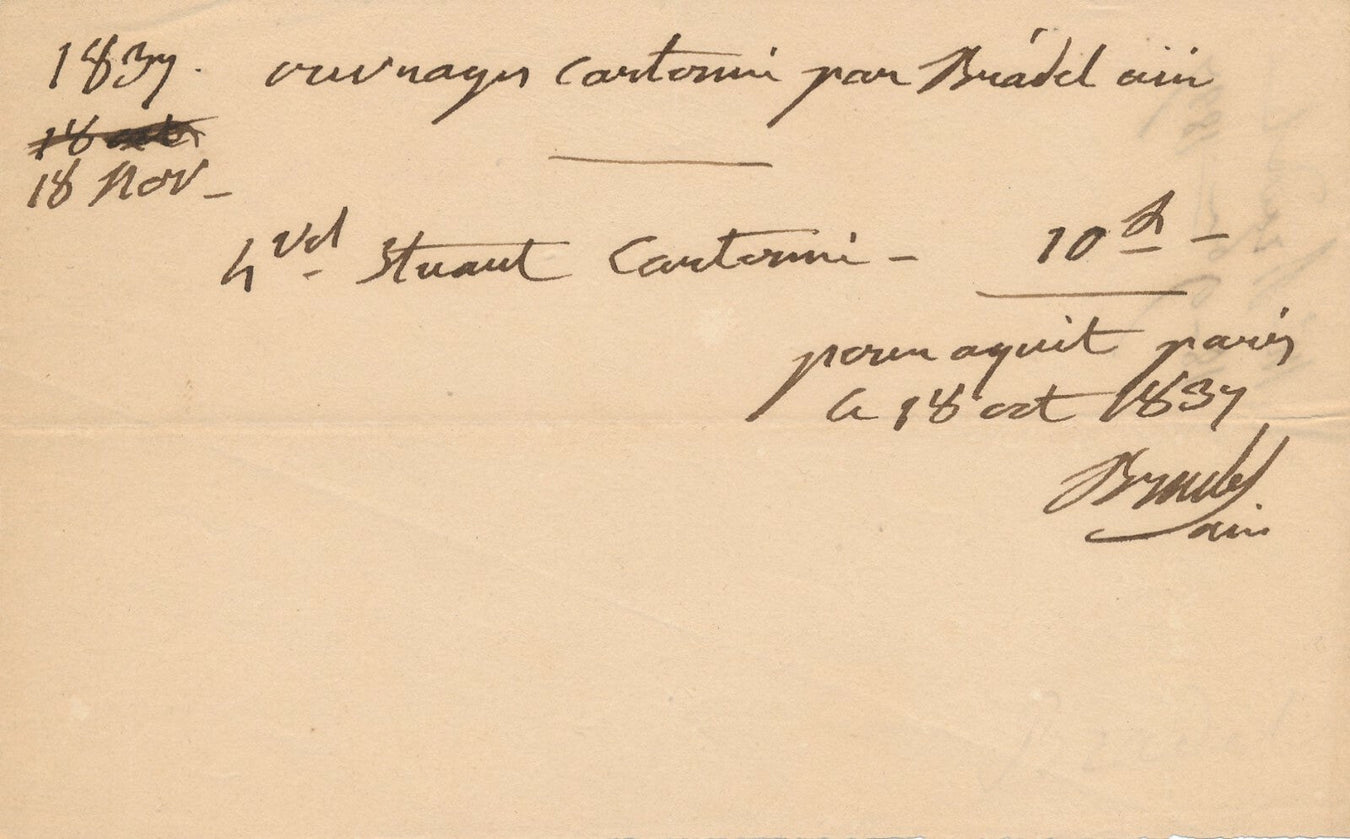 1837. ouvrages cartonné par Bradel ainé
18 oct
18 Nov -
4 vol Stuart Cartonné - 10 # -
pour aquit paris
le 18 oct 1837
Bradel
ainé